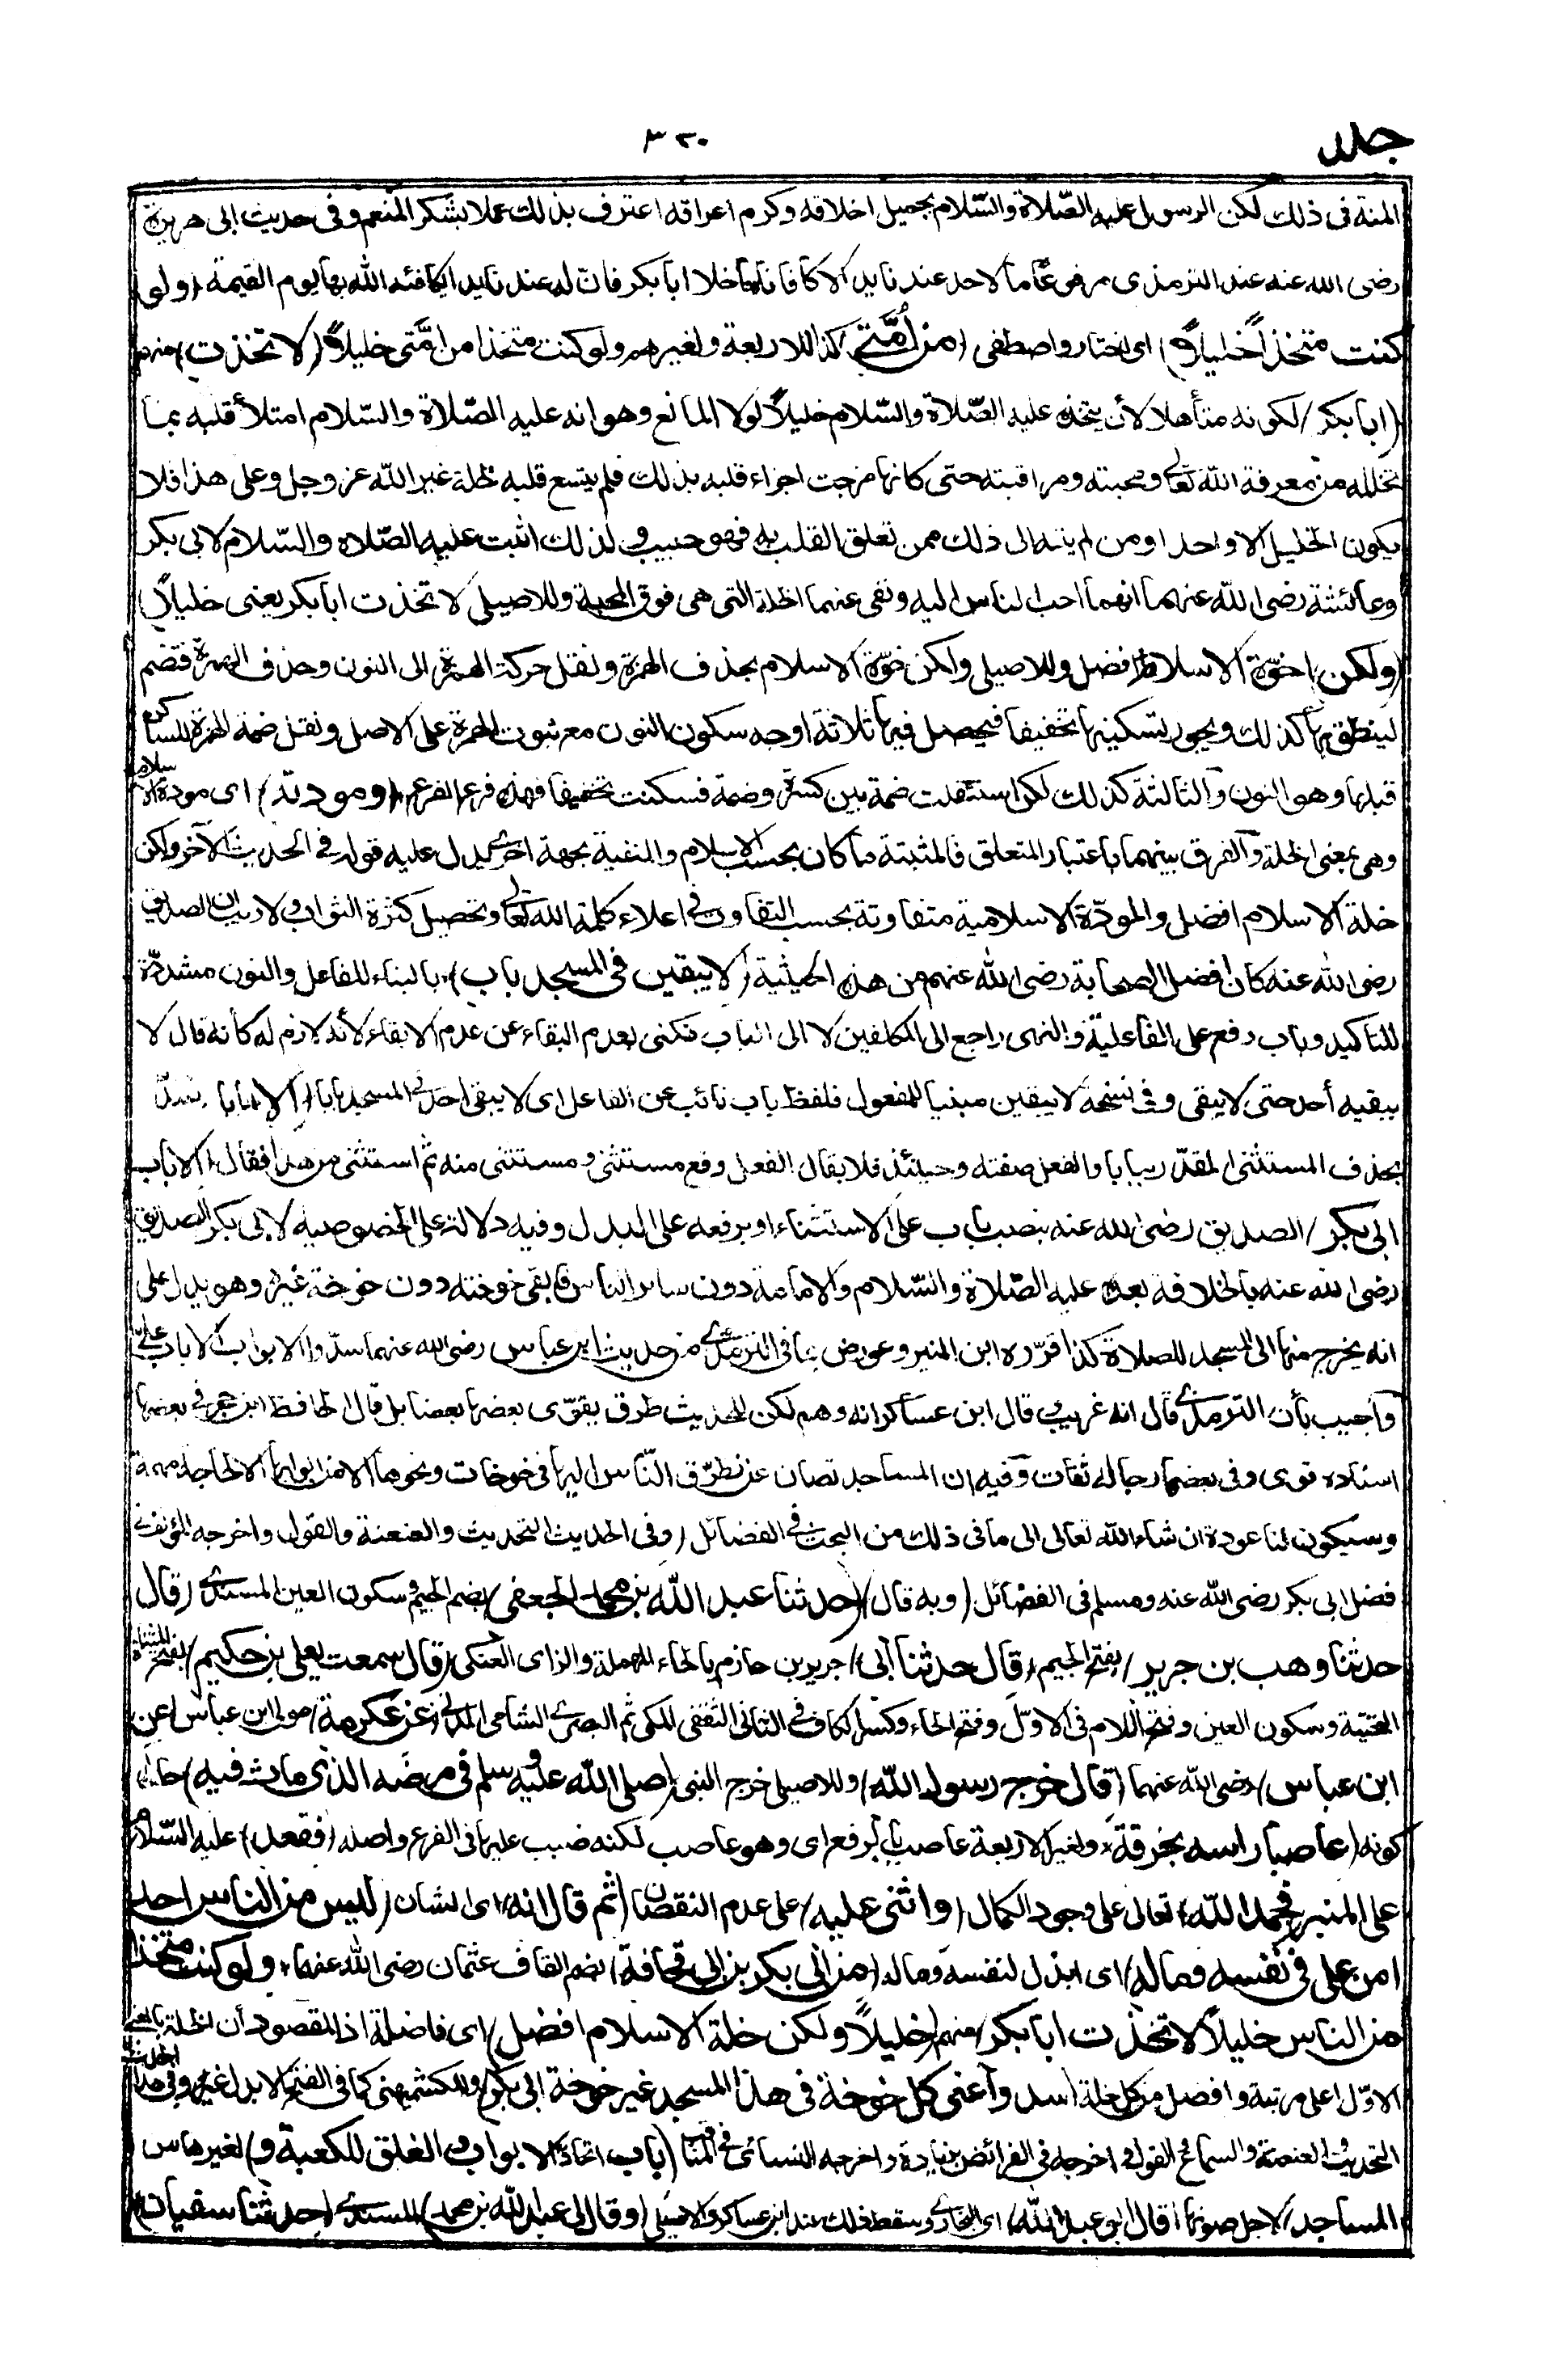 جلد
٣٢٠
المنة فى ذلك لكن الرسول عليه الصّلاة والسّلام بجميل اخلاقه وكرم اعراقه اعترف بذلك عملا بشكر المنعم وفى حديث ابى هريرة
رضى الله عنه عند الترمذى مرفوعًا ما لاحد عندنا يد الا كافأناه ما خلا ابا بكر فان له عندنا يدا يكافئه الله بها يوم القيمة (ولو
كنت متخذاً خليلاً) اى اختار واصطفى (من أُمَّتى) كذا للاربعة ولغيرهم ولو كنت متخذا من امَّتى خليلاً (لاتخذت) منهم
(ابا بكر) لكونه متأهلا لأن يتخذه عليه الصّلاة والسّلام خليلاً لولا المانع وهو انه عليه الصّلاة والسّلام امتلأ قلبه بما
تخلله من معرفة الله تعالى ومحبته ومراقبته حتى كانها مزجت اجزاء قلبه بذلك فلم يتسع قلبه لخلة غير الله عز وجل وعلى هذا فلا
يكون الخليل الا واحدا ومن لم ينته الى ذلك ممن تعلق القلب به فهو حبيب ولذلك اثبت عليه الصّلاة والسّلام لابى بكر
وعائشة رضى الله عنهما انهما احب الناس اليه ونفى عنهما الخلة التى هى فوق المحبة وللاصيلى لاتخذت ابا بكر يعنى خليلاً
(ولكن اخوّة الاسلام) افضل وللاصيلى ولكن خوّة الاسلام بحذف الهمزة ونقل حركة الهمزة الى النون وحذف الهمزة فتضم
لينطق بها كذلك ويجوز تسكينها تخفيفا فيحصل فيها ثلاثة اوجه سكون النون مع ثبوت الهمزة على الاصل ونقل ضمة الهمزة للساكن
قبلها وهو النون والثالثة كذلك لكن استثقلت ضمة بين كسرة وضمة فسكنت تخفيفا فهذه فرع الفرع (ومودته) اى مودة الاسلام
وهى بمعنى الخلة والفرق بينهما باعتبار المتعلق فالمثبتة ما كان بحسب الاسلام والمنفية بجهة اخرى يدل عليه قوله فى الحديث الآخر ولكن
خلة الاسلام افضل والمودّة الاسلامية متفاوتة بحسب التفاوت فى اعلاء كلمة الله تعالى وتحصيل كثرة الثواب ولا ريب ان الصديق
رضى الله عنه كان افضل الصحابة رضى الله عنهم من هذه الحيثية (لا يبقين فى المسجد باب) بالبناء للفاعل والنون مشدّدة
للتاكيد وباب رفع على الفاعلية والنهى راجع الى المكلفين لا الى الباب فكنى بعدم البقاء عن عدم الابقاء لأنه لازم له كأنه قال لا
يبقيه أحد حتى لا يبقى وفى نسخة لا يبقين مبنيا للمفعول فلفظ باب نائب عن الفاعل اى لا يبقى احد فى المسجد بابا (الا) بابا (سدّ)
بحذف المستثنى المقدّر ببابا والفعل صفته وحينئذ فلا يقال الفعل وقع مستثنى ومستثنى منه ثم استثنى من هذا فقال (الا باب
ابى بكر) الصديق رضى الله عنه بنصب باب على الاستثناء او برفعه على البدل وفيه دلالة على الخصوصية لابى بكر الصديق
رضى الله عنه بالخلافة بعده عليه الصّلاة والسّلام والامامة دون سائر الناس فابقى خوخته دون خوخة غيره وهو يدل على
انه يخرج منها الى المسجد للصلاة كذا قرّره ابن المنير وعورض بما فى الترمذى من حديث ابن عباس رضى الله عنهما سدّوا الابواب الا باب علىّ
واجيب بأن الترمذى قال انه غريب وقال ابن عساكر انه وهم لكن للحديث طرق يقوّى بعضها بعضا بل قال الحافظ ابن حجر فى بعضها
اسناده قوى وفى بعضها رجاله ثقات وفيه ان المساجد تصان عن تطرّق النّاس اليها فى خوخات ونحوها الا من ابوابها الا لحاجة مهمة
وسيكون لنا عودة ان شاء الله تعالى الى ما فى ذلك من البحث فى الفضائل (وفى الحديث التحديث والعنعنة والقول واخرجه المؤلف فى
فضل ابى بكر رضى الله عنه ومسلم فى الفضائل (وبه قال) (حدثنا عبد الله بن محمد الجعفى) بضم الجيم وسكون العين المسندى (قال
حدثنا وهب بن جرير) بفتح الجيم (قال حدثنا أبى) جرير بن حازم بالحاء المهملة والزاى العتكى (قال سمعت يعلى بن حكيم) بفتح المثناة
التحتية وسكون العين وفتح اللام فى الاوّل وفتح الحاء وكسر الكاف فى الثانى الثقفى المكى ثم البصرى الشامى المدنى (عن عكرمة) مولى ابن عباس (عن
ابن عباس) رضى الله عنهما (قال خرج رسول الله) وللاصيلى خرج النبى (صلى الله عليه وسلم فى مرضه الذى مات فيه) حال
كونه (عاصبا راسه بخرقة) ولغير الاربعة عاصب بالرفع اى وهو عاصب لكنه ضبب عليها فى الفرع واصله (فقعد) عليه السّلام
على المنبر (فحمد الله) تعالى على وجود الكمال (واثنى عليه) على عدم النقصان (ثم قال انه) اى الشان (ليس من الناس احد
امن على فى نفسه وماله) اى ابذل لنفسه وماله (من ابى بكر بن ابى قحافة) بضم القاف عثمان رضى الله عنهما (ولو كنت متخذا
من الناس خليلاً لاتخذت ابا بكر) منهم (خليلاً ولكن خلة الاسلام افضل) اى فاضلة اذ المقصود أن الخلة بالمعنى
الاوّل اعلى مرتبة وافضل من كل خلة (سدوا عنى كل خوخة فى هذا المسجد غير خوخة ابى بكر) وللكشميهنى كما فى الفتح الا بدل غير وفى هذا الحديث
التحديث والعنعنة والسماع والقول واخرجه فى الفرائض بزيادة واخرجه النسائى فى المناقب (باب) اتخاذ (الابواب والغلق للكعبة و) لغيرها من
المساجد) لاجل صونها (قال ابو عبد الله) اى البخارى وسقط ذلك عند ابن عساكر والاصيلى (وقال لى عبد الله بن محمد) المسندى (حدثنا سفيان)